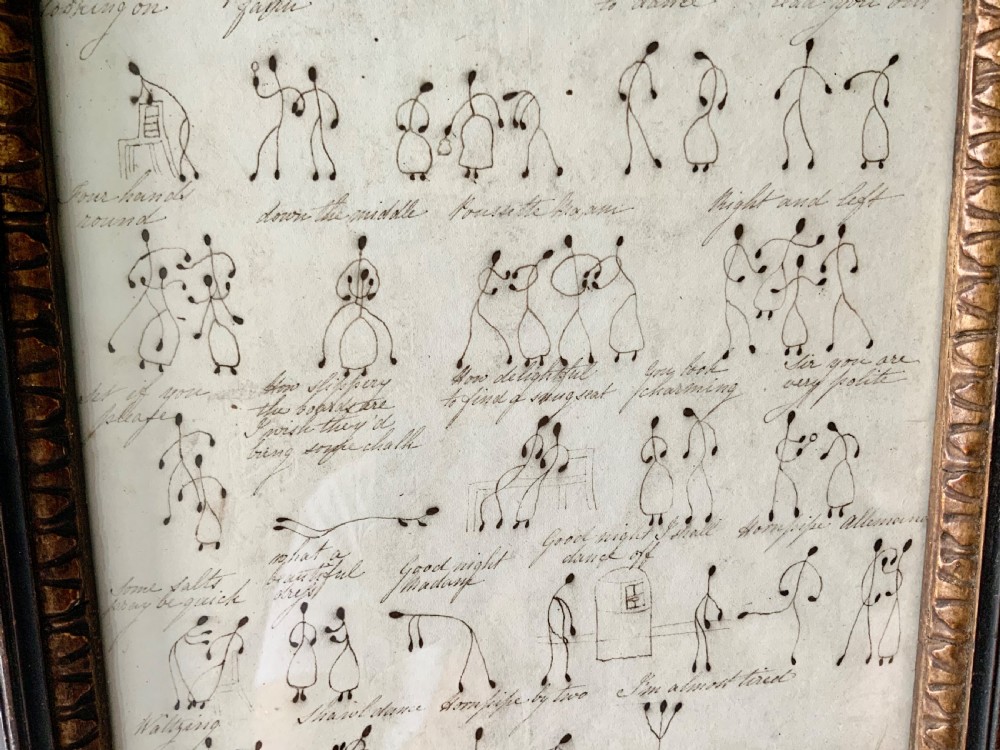 looking on
to dance
lead you out
Four hands round
down the middle
Poussette Ma'am
Right and left
Set if you please
How slippery the boards are I wish they'd bring some chalk
How delightful to find a snug seat
You look charming
Sir you are very polite
Some salts pray be quick
What a beautiful dress
Good night Madam
Good night I shall dance off
Hornpipe
Allemand
Waltzing
Shawl dance
Hornpipe by two
I'm almost tired